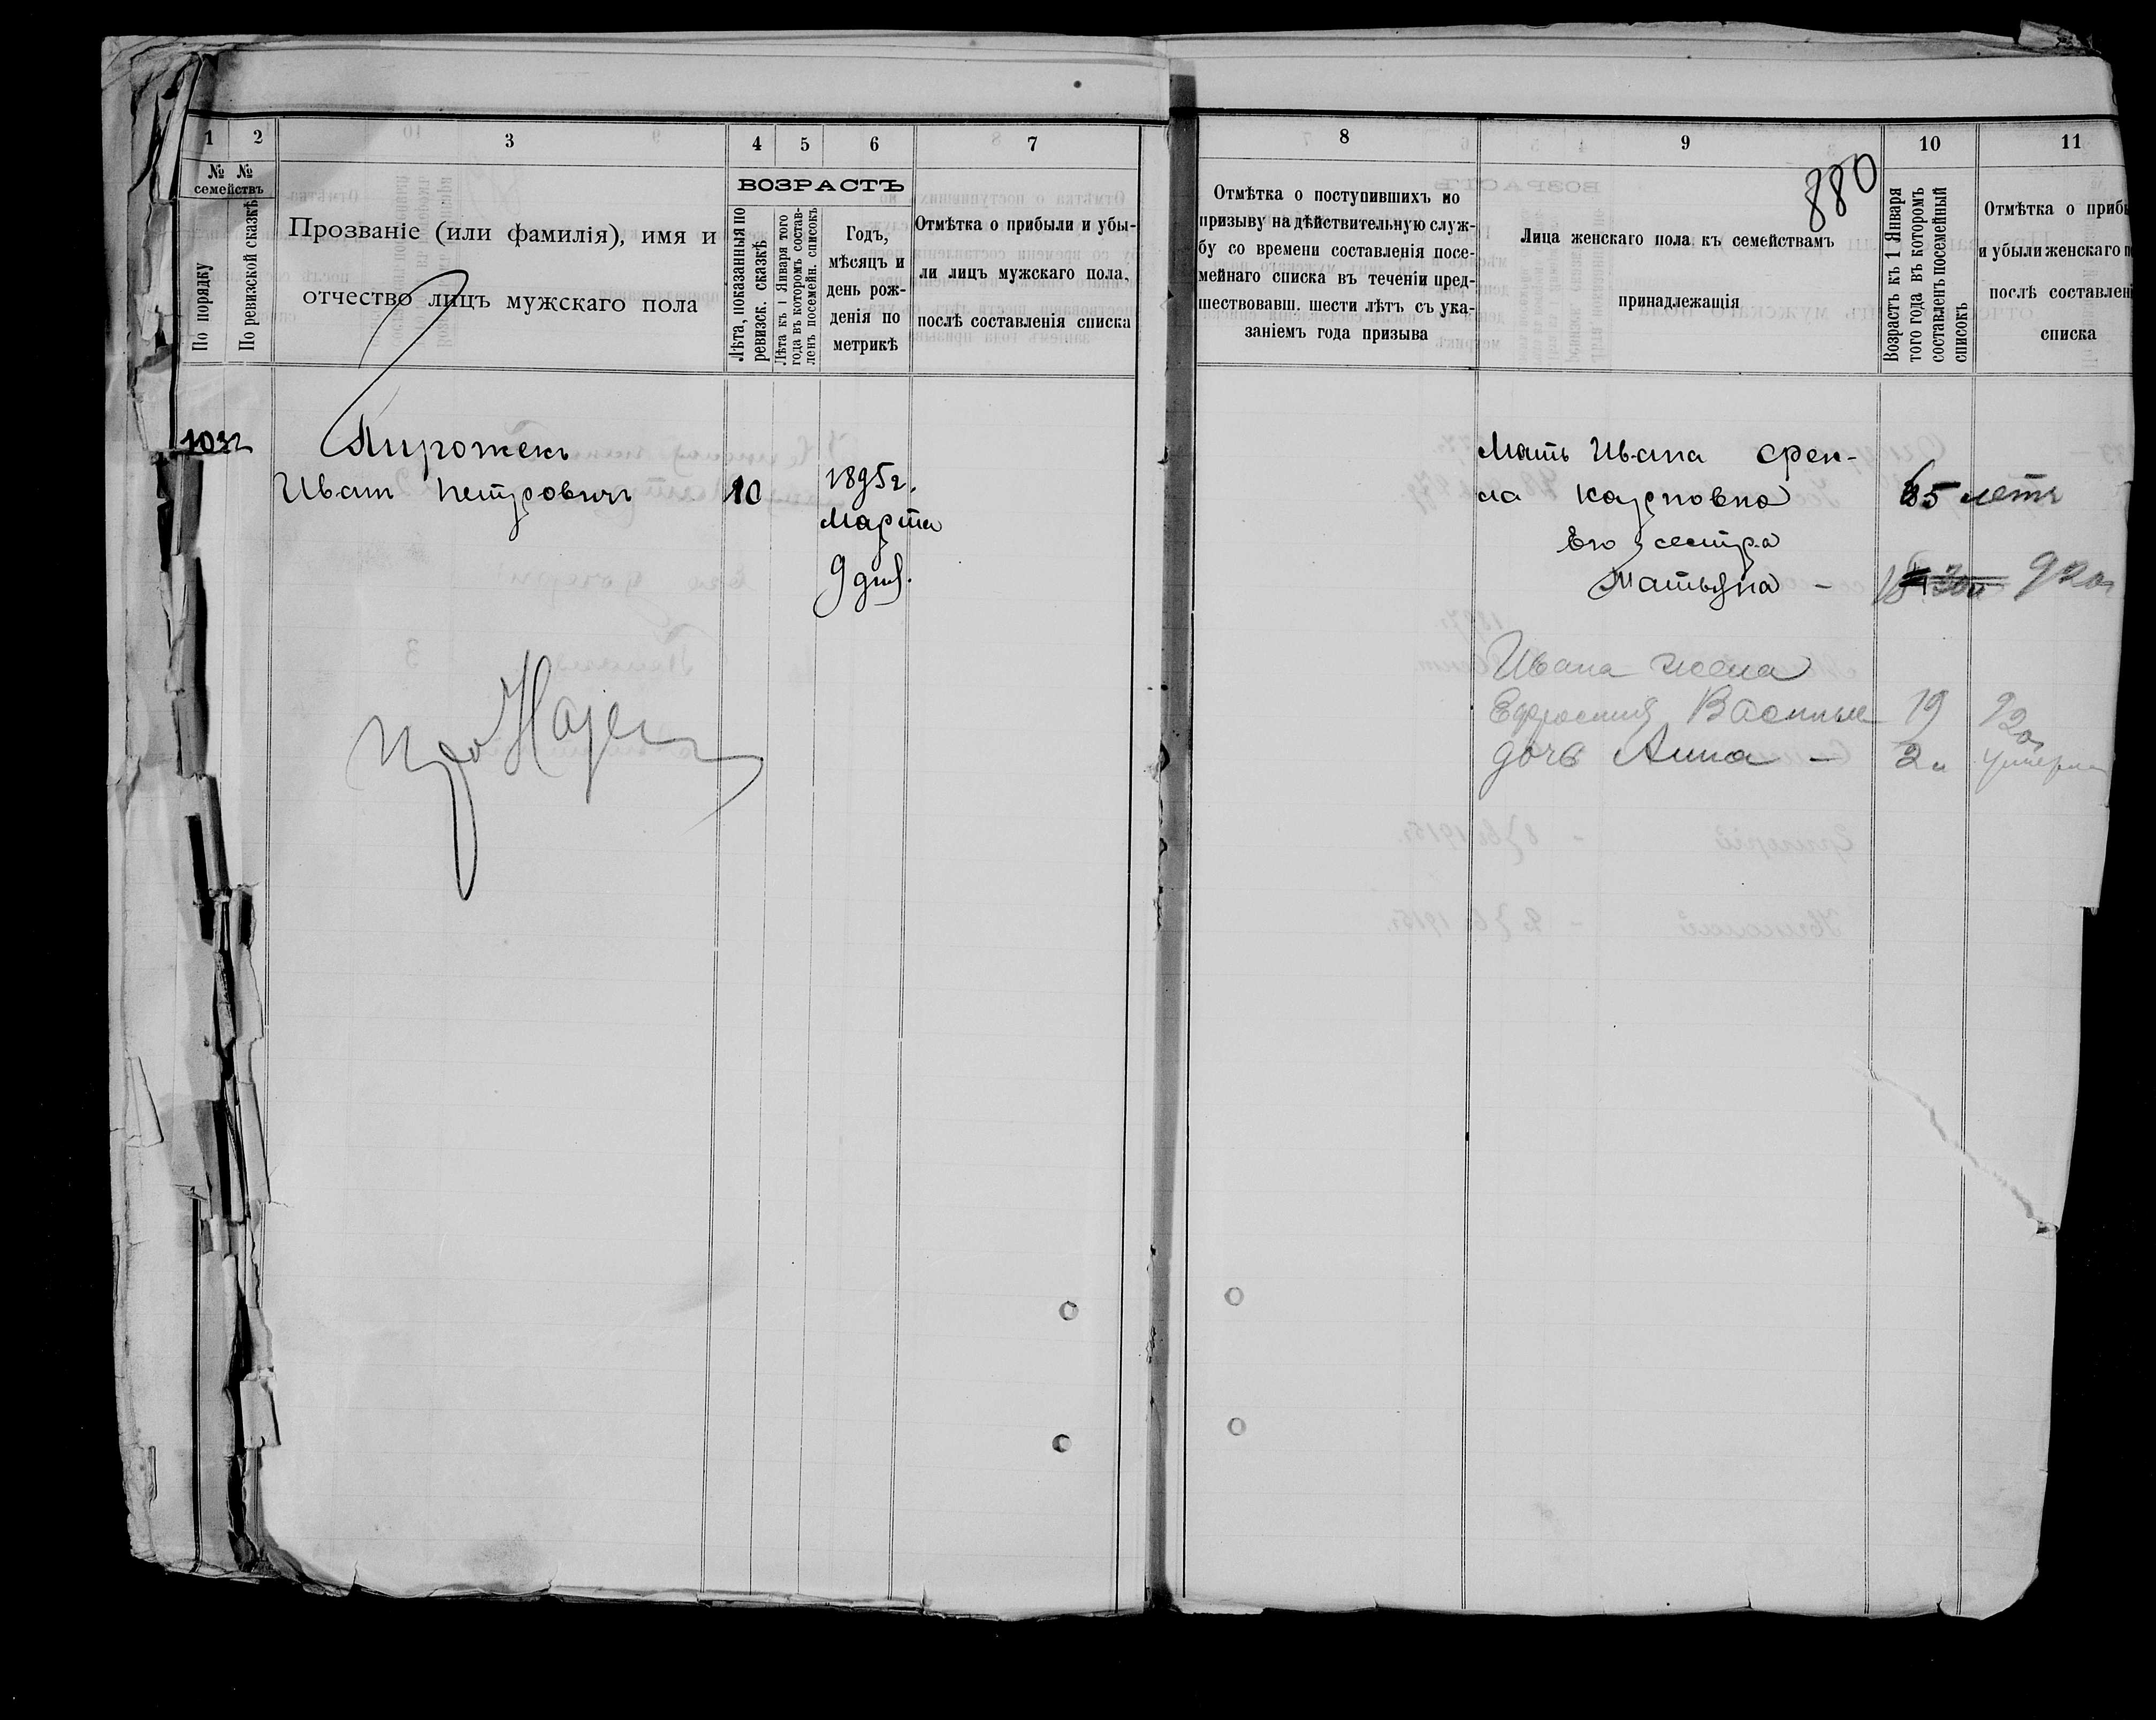 1 2 3 4 5 6 7
№ № семействъ
По порядку
По ревизской сказкѣ
Прозваніе (или фамилія), имя и
отчество лицъ мужскаго пола
ВОЗРАСТЪ
Лѣта, показанныя по
ревизск. сказкѣ
Лѣта къ 1 Января того
года въ которомъ состав-
ленъ посемейн. списокъ
Годъ,
мѣсяцъ и
день рож-
денія по
метрикѣ
Отмѣтка о прибыли и убы-
ли лицъ мужскаго пола,
послѣ составленія списка
1032 Пирожекъ
Иванъ Петровичъ 10 1895 г.
Марта
9 дня
8 9 10 11
880
Отмѣтка о поступившихъ по
призыву на дѣйствительную служ-
бу со времени составленія посе-
мейнаго списка въ теченіи пред-
шествовавш. шести лѣтъ съ ука-
заніемъ года призыва
Лица женскаго пола къ семействамъ
принадлежащія
Возрастъ къ 1 Января
того года въ которомъ
составленъ посемейный
списокъ
Отмѣтка о приб
и убыли женскаго п
послѣ составлен
списка
Мать Ивана
Карповна 65 летъ
Его сестра
Татьяна –
Ивана жена
19
дочь Анна – 2